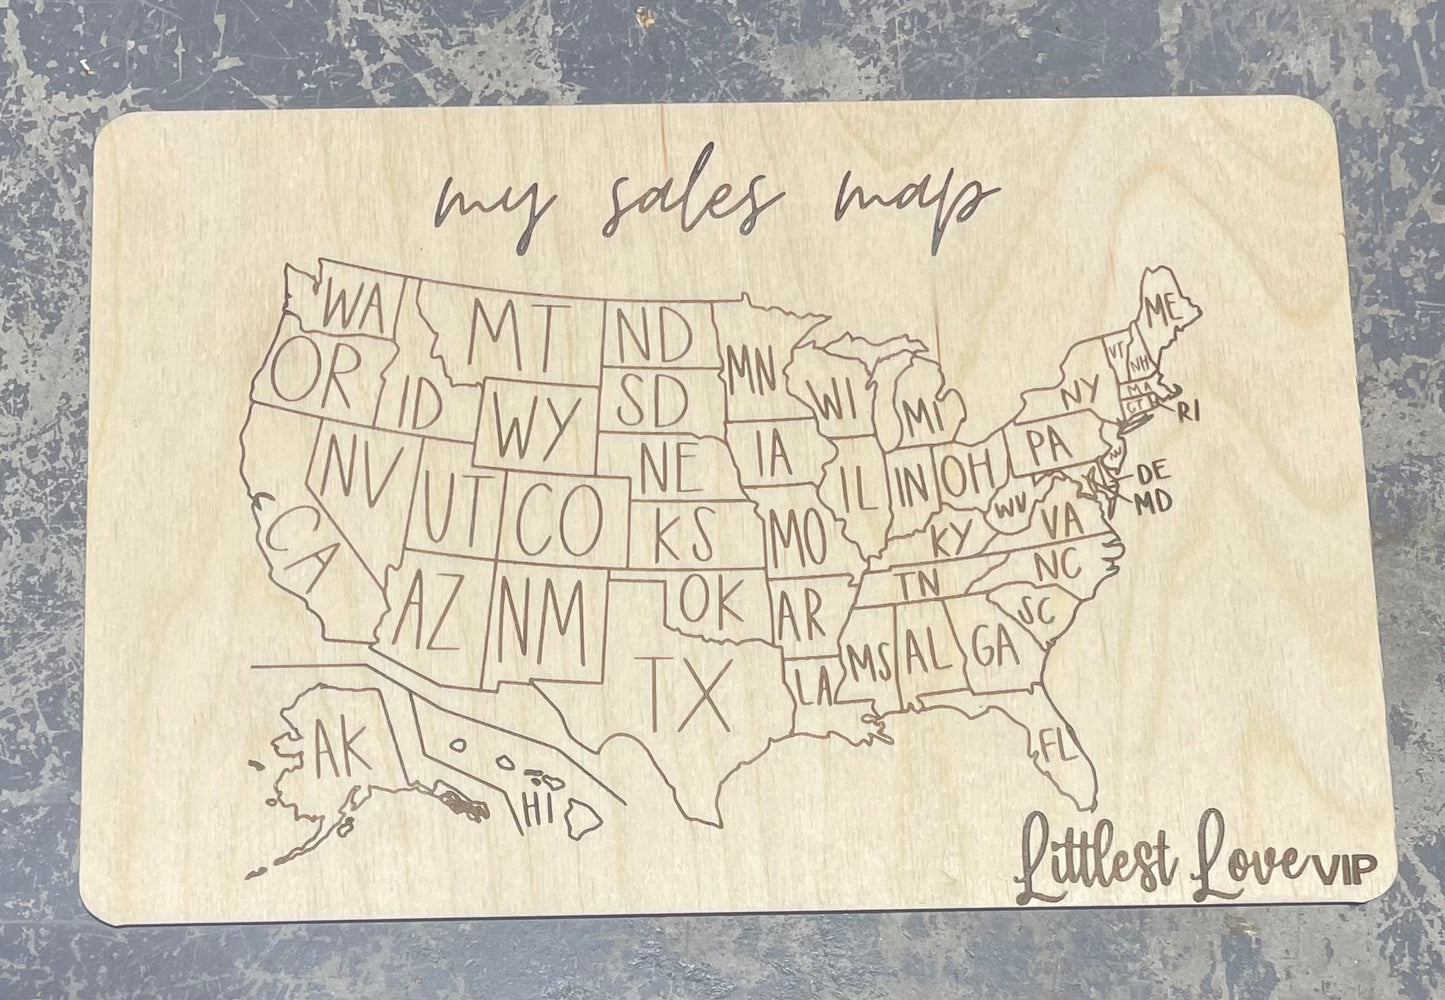 my sales map
WA
MT
ND
ME
OR
ID
MN
VT
NH
WY
SD
WI
MI
NY
MA
CT
RI
NV
UT
CO
NE
IA
IL
IN
OH
PA
NJ
DE
MD
CA
KS
MO
KY
WV
VA
AZ
NM
OK
AR
TN
NC
SC
TX
LA
MS
AL
GA
AK
HI
FL
Littlest Love VIP